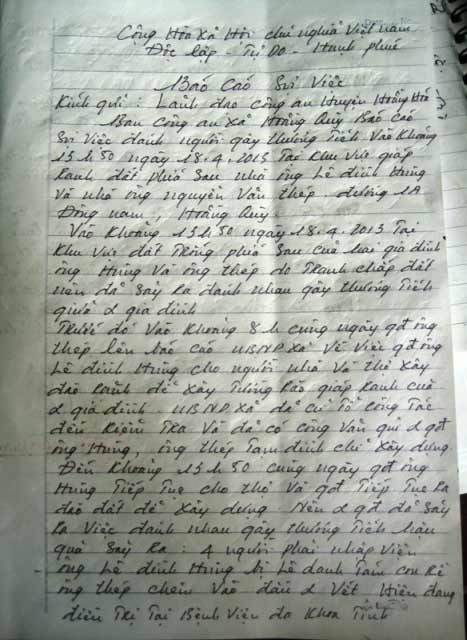 Cộng Hòa Xã Hội chủ nghĩa Việt nam
Độc lập - Tự Do - Hạnh phúc
Báo Cáo Sự Việc
Kính gửi: Lãnh đạo công an Huyện Hoằng Hóa
Ban công an xã Hoằng Quỳ Báo cáo
Sự Việc đánh người gây thương Tích Vào Khoảng
15h50 ngày 18.4.2015 Tại Khu Vực giáp
Ranh đất phía Sau nhà ông Lê đình Hùng
Và nhà ông nguyễn Văn thép. đường 1A
Đông nam, Hoằng Quỳ.
Vào Khoảng 15h50 ngày 18.4.2015 Tại
Khu Vực đất Trống phía Sau của hai gia đình
ông Hùng Và ông thép do Tranh chấp đất
nên đã Sảy Ra đánh nhau gây thương Tích
giữa 2 gia đình
Trước đó Vào Khoảng 8h cùng ngày gđ ông
thép lên báo cáo UBND xã Về Việc gđ ông
Lê đình Hùng cho người nhà Và thợ Xây
đào Rãnh để Xây Tường Rào giáp Ranh của
2 gia đình. UBND xã đã cử Tổ công Tác
đến Kiểm TRa Và đã có công Văn gửi 2 gđ
ông Hùng, ông thép Tạm đình chỉ Xây dựng
Đến Khoảng 15h50 cùng ngày gđ ông
Hùng Tiếp Tục cho thợ Và gđ Tiếp Tục Ra
đào đất để Xây dựng Nên 2 gđ đã Sảy
Ra Việc đánh nhau gây thương Tích hậu
quả Sảy Ra: 4 người phải nhập Viện
ông Lê đình Hùng bị Lê danh Tám con Rể
ông thép chém Vào đầu 2 Vết Hiện đang
điều Trị Tại Bệnh Viện đa Khoa Tỉnh